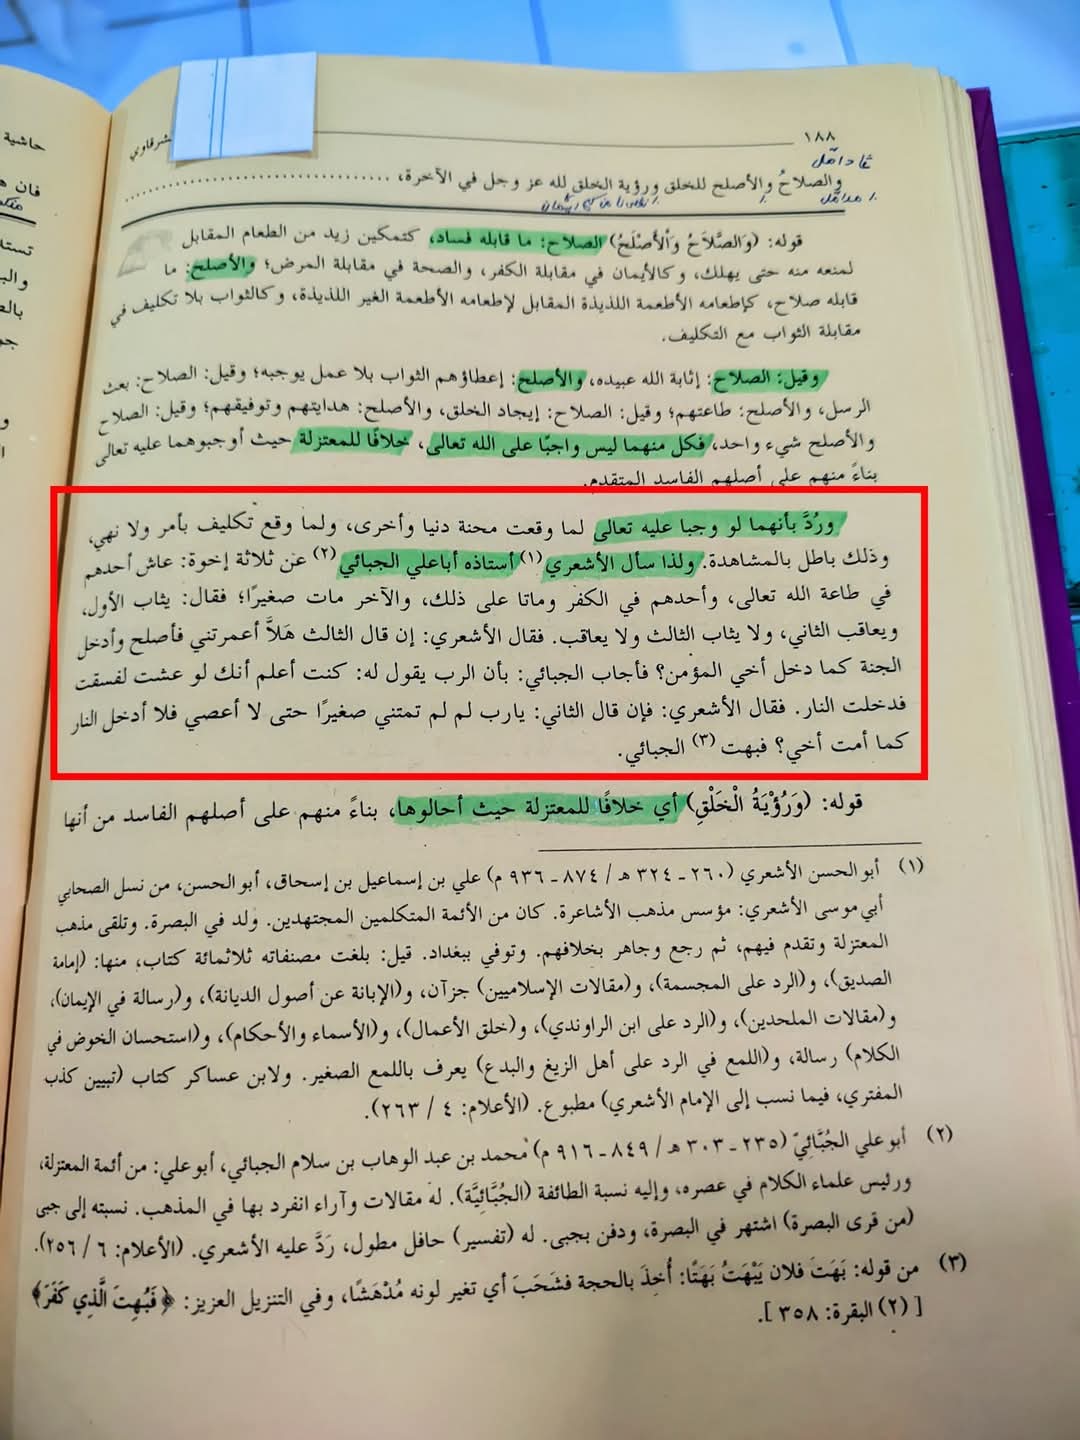 ١٨٨
شرقاوي
والصلاحُ والأصلح للخلق ورؤية الخلق لله عز وجل في الآخرة،
قوله: (وَالصَّلَاحُ وَالْأَصْلَحُ) الصلاح: ما قابله فساد، كتمكين زيد من الطعام المقابل
لمنعه منه حتى يهلك، وكالأيمان في مقابلة الكفر، والصحة في مقابلة المرض؛ والأصلح: ما
قابله صلاح، كإطعامه الأطعمة اللذيذة المقابل لإطعامه الأطعمة الغير اللذيذة، وكالثواب بلا تكليف في
مقابلة الثواب مع التكليف.
وقيل: الصلاح: إثابة الله عبيده، والأصلح: إعطاؤهم الثواب بلا عمل يوجبه؛ وقيل: الصلاح: بعث
الرسل، والأصلح: طاعتهم؛ وقيل: الصلاح: إيجاد الخلق، والأصلح: هدايتهم وتوفيقهم؛ وقيل: الصلاح
والأصلح شيء واحد، فكل منهما ليس واجبًا على الله تعالى، خلافًا للمعتزلة حيث أوجبوهما عليه تعالى
بناءً منهم على أصلهم الفاسد المتقدم.
ورُدَّ بأنهما لو وجبا عليه تعالى لما وقعت محنة دنيا وأخرى، ولما وقع تكليف بأمر ولا نهي،
وذلك باطل بالمشاهدة. ولذا سأل الأشعري (١) أستاذه أباعلي الجبائي (٢) عن ثلاثة إخوة: عاش أحدهم
في طاعة الله تعالى، وأحدهم في الكفر وماتا على ذلك، والآخر مات صغيرًا؛ فقال: يثاب الأول،
ويعاقب الثاني، ولا يثاب الثالث ولا يعاقب. فقال الأشعري: إن قال الثالث هَلاَّ أعمرتني فأصلح وأدخل
الجنة كما دخل أخي المؤمن؟ فأجاب الجبائي: بأن الرب يقول له: كنت أعلم أنك لو عشت لفسقت
فدخلت النار. فقال الأشعري: فإن قال الثاني: يارب لم لم تمتني صغيرًا حتى لا أعصي فلا أدخل النار
كما أمت أخي؟ فبهت (٣) الجبائي.
قوله: (وَرُؤْيَةُ الْخَلْقِ) أي خلافًا للمعتزلة حيث أحالوها، بناءً منهم على أصلهم الفاسد من أنها
(١) أبو الحسن الأشعري (٢٦٠ ـ ٣٢٤ هـ / ٨٧٤ ـ ٩٣٦ م) علي بن إسماعيل بن إسحاق، أبو الحسن، من نسل الصحابي
أبي موسى الأشعري: مؤسس مذهب الأشاعرة. كان من الأئمة المتكلمين المجتهدين. ولد في البصرة. وتلقى مذهب
المعتزلة وتقدم فيهم، ثم رجع وجاهر بخلافهم. وتوفي ببغداد. قيل: بلغت مصنفاته ثلاثمائة كتاب، منها: (إمامة
الصديق)، و(الرد على المجسمة)، و(مقالات الإسلاميين) جزآن، و(الإبانة عن أصول الديانة)، و(رسالة في الإيمان)،
و(مقالات الملحدين)، و(الرد على ابن الراوندي)، و(خلق الأعمال)، و(الأسماء والأحكام)، و(استحسان الخوض في
الكلام) رسالة، و(اللمع في الرد على أهل الزيغ والبدع) يعرف باللمع الصغير. ولابن عساكر كتاب (تبيين كذب
المفتري، فيما نسب إلى الإمام الأشعري) مطبوع. (الأعلام: ٤ / ٢٦٣).
(٢) أبو علي الجُبَّائِيّ (٢٣٥ ـ ٣٠٣ هـ / ٨٤٩ ـ ٩١٦ م) محمد بن عبد الوهاب بن سلام الجبائي، أبو علي: من أئمة المعتزلة،
ورئيس علماء الكلام في عصره، وإليه نسبة الطائفة (الجُبَّائِيَّة). له مقالات وآراء انفرد بها في المذهب. نسبته إلى جبى
(من قرى البصرة) اشتهر في البصرة، ودفن بجبى. له (تفسير) حافل مطول، رَدَّ عليه الأشعري. (الأعلام: ٦ / ٢٥٦).
(٣) من قوله: بَهَتَ فلان يَبْهَتُ بَهَتًا: أُخِذَ بالحجة فشَحَبَ أي تغير لونه مُدْهَشًا، وفي التنزيل العزيز: ﴿فَبُهِتَ الَّذِي كَفَرَ﴾
[ (٢) البقرة: ٣٥٨ ].
حاشية